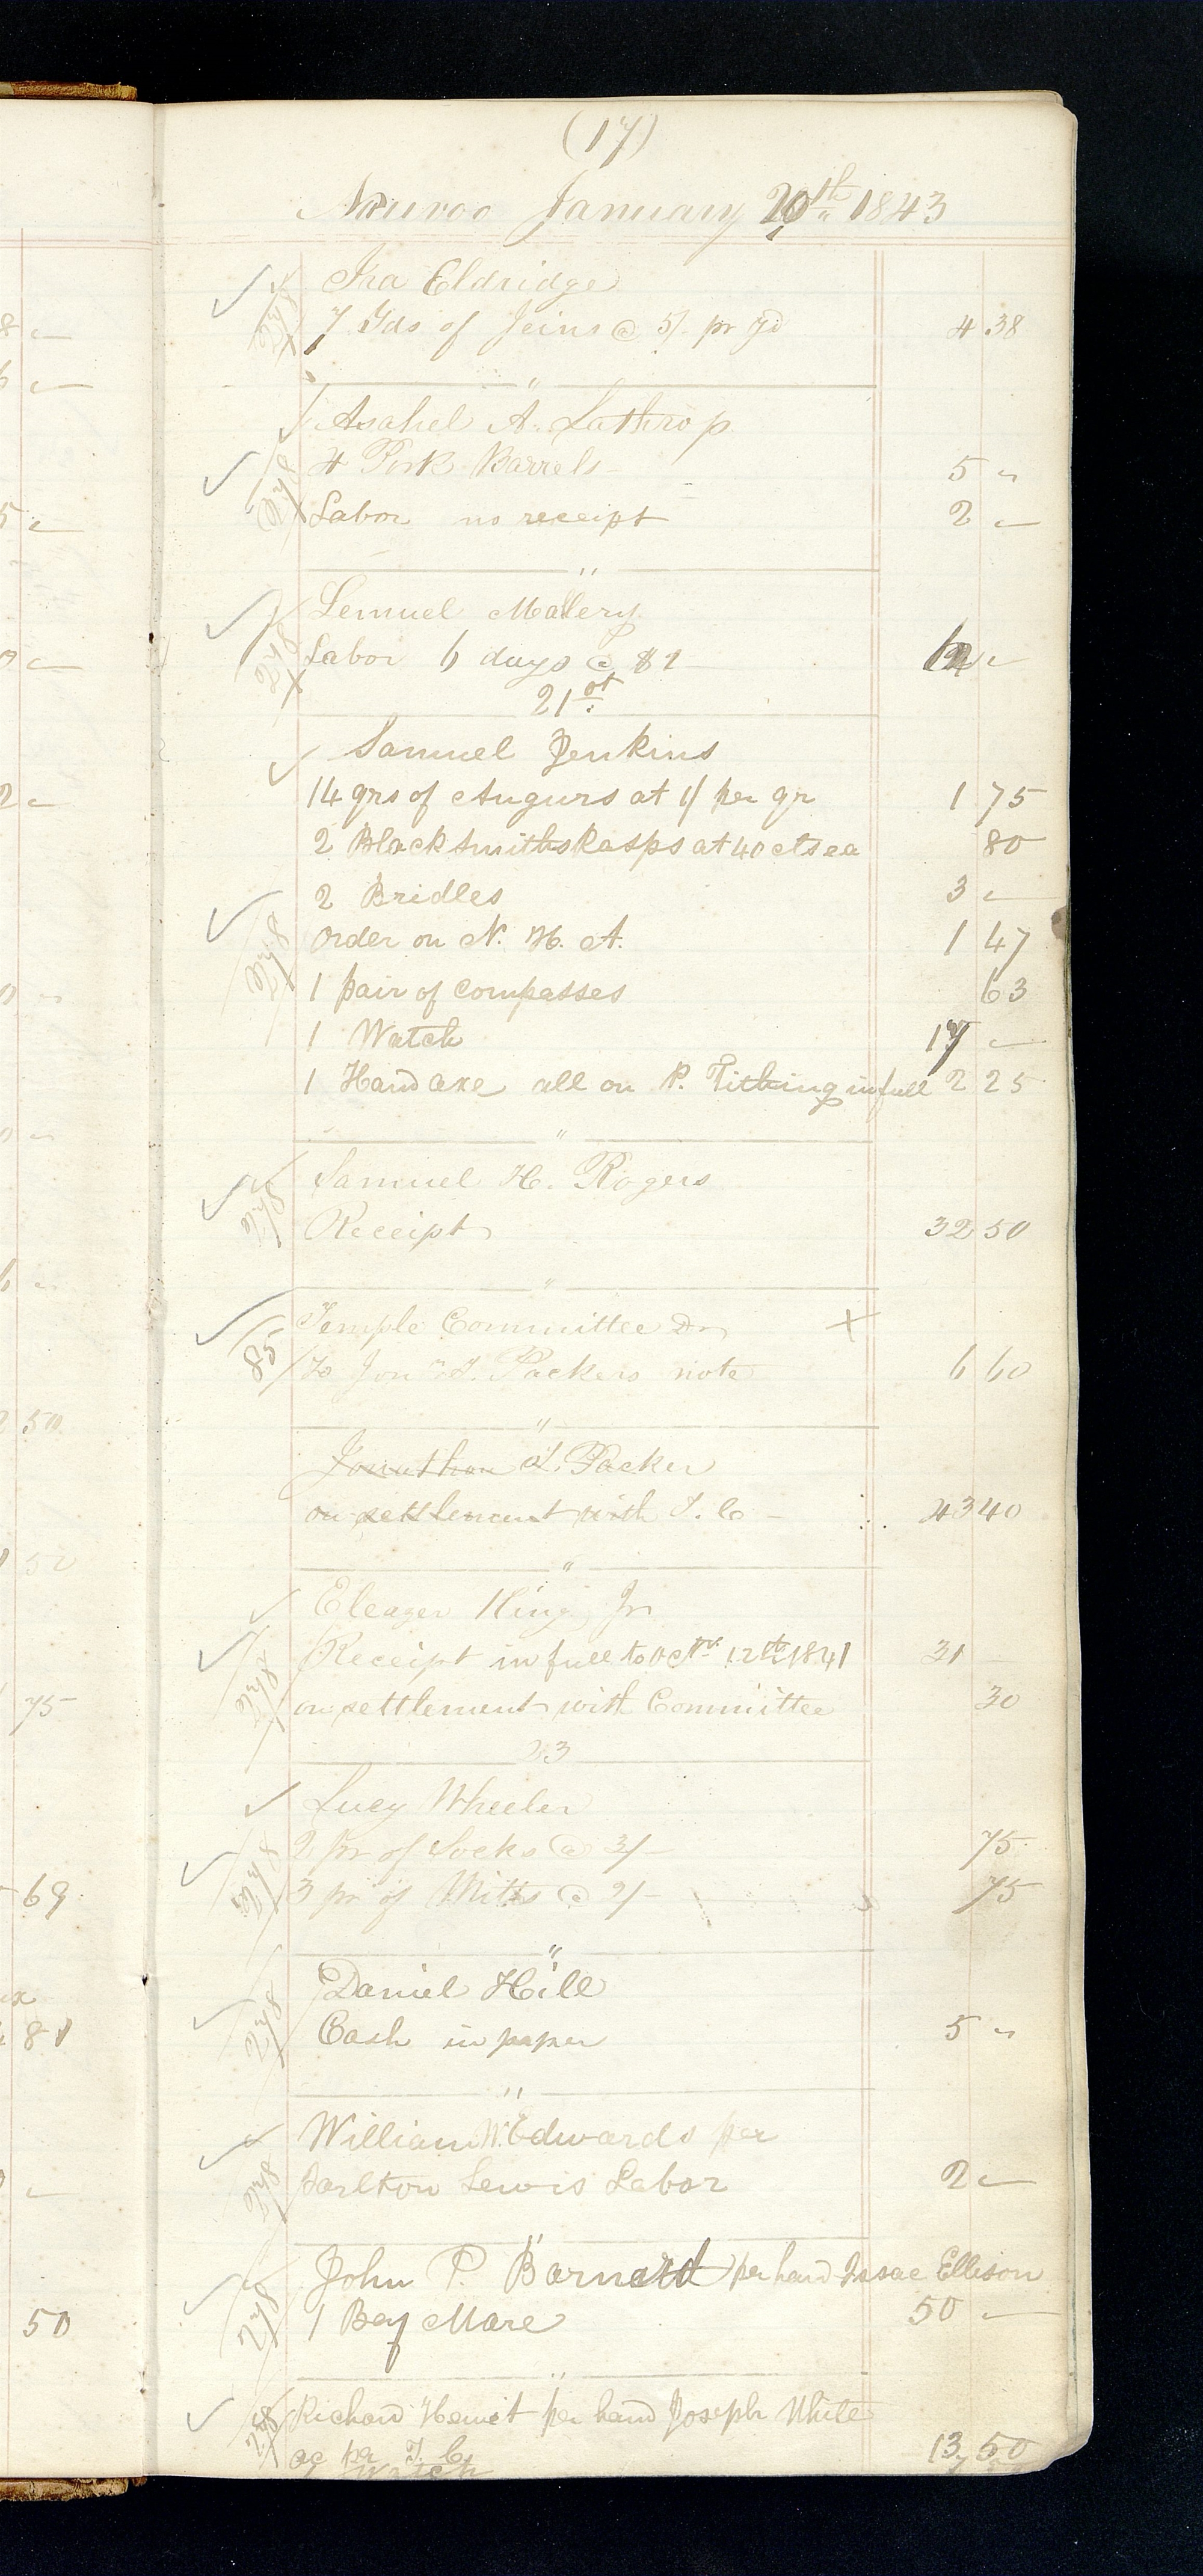 (17)
Nauvoo January 20th 1843
Ira Eldridge
7 Yds of Jeins @ 5/. pr yd 4 38
"
Asahel A. Lathrop
4 Pork Barrels 5 "
Labor no receipt 2 "
"
Lemuel Mallery
Labor 6 days @ $2 12 "
21st
Samuel Jenkins
14 qrs of Augurs at 1/ per qr 1 75
2 Black Smiths Rasps at 40 cts ea 80
2 Bridles 3 "
order on N. H. A. 1 47
1 pair of compasses 63
1 Watch 17 "
1 Hand axe all on P. Tithing in full 2 25
"
Samuel H. Rogers
Receipt 32 50
"
Temple Committee Dr X
85 To Jonn T. Packers note 6 60
"
Jonathan T. Packer
on settlement with T. C 43 40
"
Eleazer King Jr
Receipt in full to Octr 12th 1841 31
on settlement with Committee 30
23
Lucy Wheeler
2 pr of Socks @ 3/ 75
3 pr of Mitts @ 2/ 75
"
Daniel Hill
Cash in paper 5 "
"
William W. Edwards per
Tarlton Lewis Labor 2 "
"
John P. Barnard per hand Isaac Ellison
1 Bay Mare 50 "
"
Richard Hewit per hand Joseph White
ac per T. C. 13 50